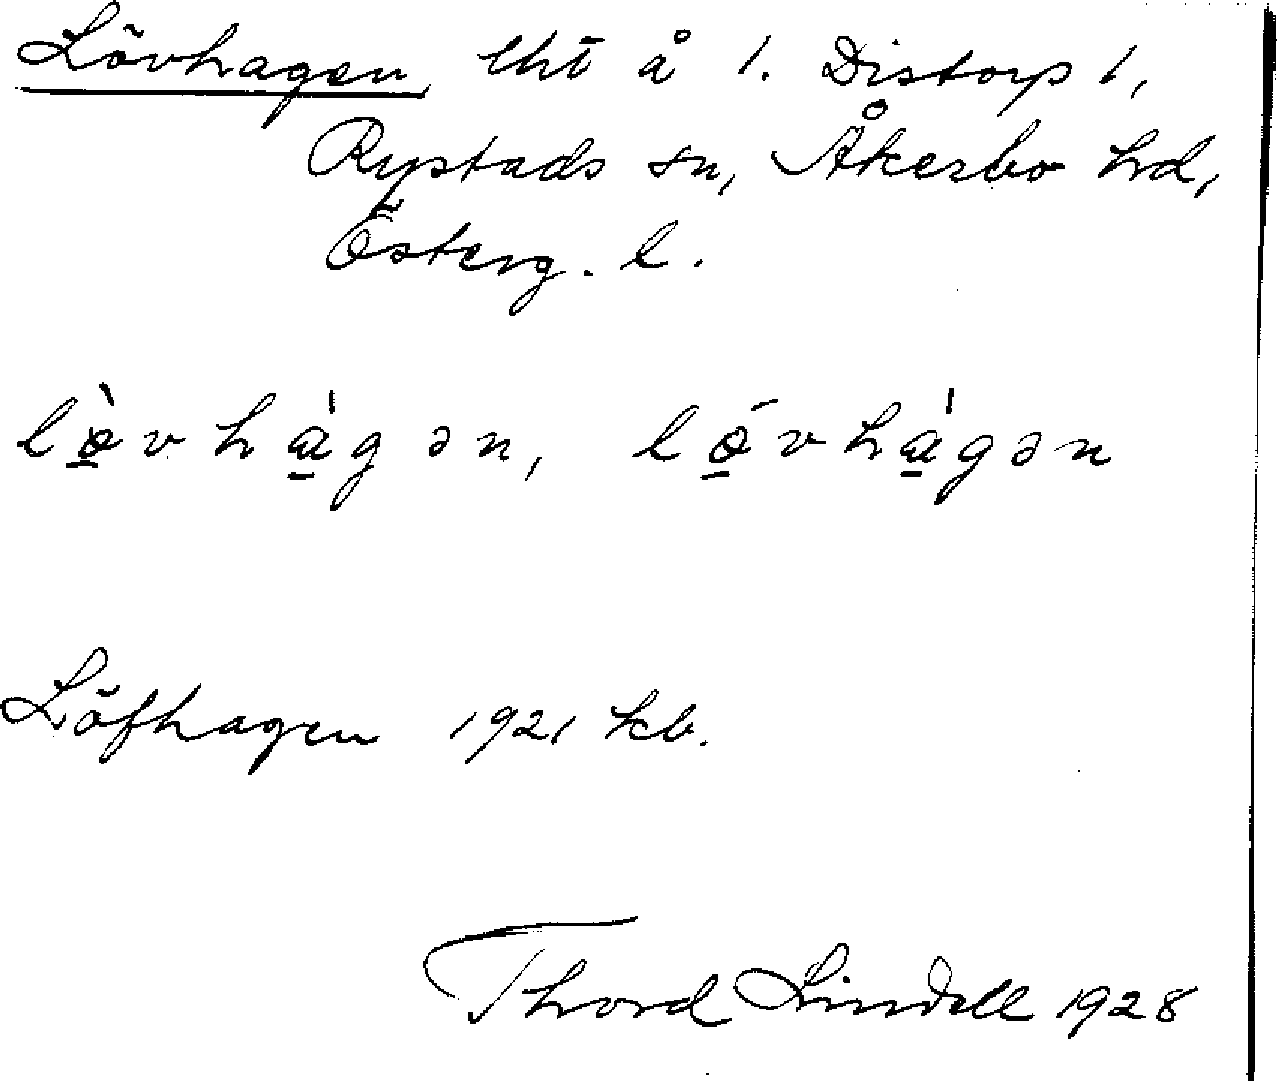 Lövhagen, lht å 1. Distorp 1,
Rystads sn, Åkerbo hd,
Österg. l.
lø̱̀vha̱̍gən, lǿ̱vha̱̍gən
Löfhagen 1921 kb.
Thord Lindell 1928